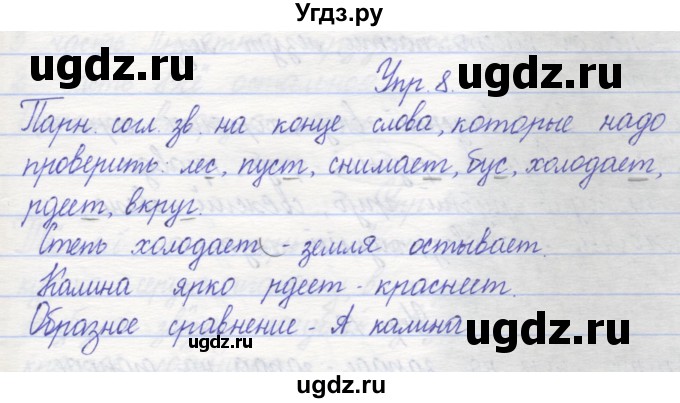 Угдз.ру
ugdz.ru
ugdz.ru
Упр. 8.
Парн. согл. зв. на конце слова, которые надо
проверить: лес, пуст, снимает, бус, холодает,
рдеет, вкруг.
ugdz.ru
Степь холодает - земля остывает.
Калина ярко рдеет - краснеет.
Образное сравнение - А калина
ugdz.ru
ugdz.ru
ugdz.ru